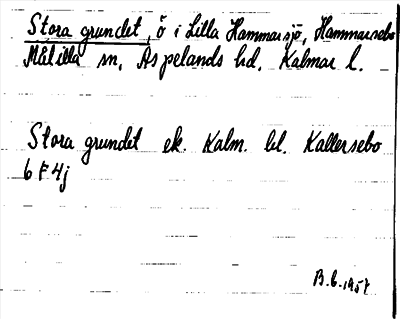 Stora grundet, ö i Lilla Hammarsjö, Hammarsebo
Målilla sn, Aspelands hd. Kalmar l.
Stora grundet ek. Kalm. bl. Kallersebo
6 F 4j
B.C. 1957